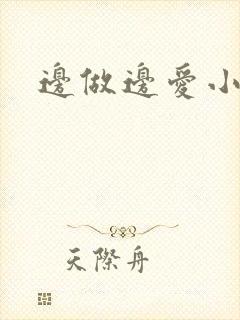 邊做邊愛小
天際舟